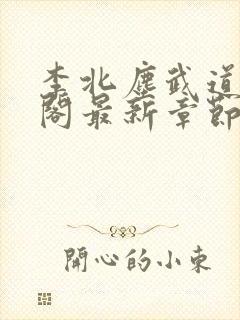 李北塵武道
閣最新章節
開心的小東